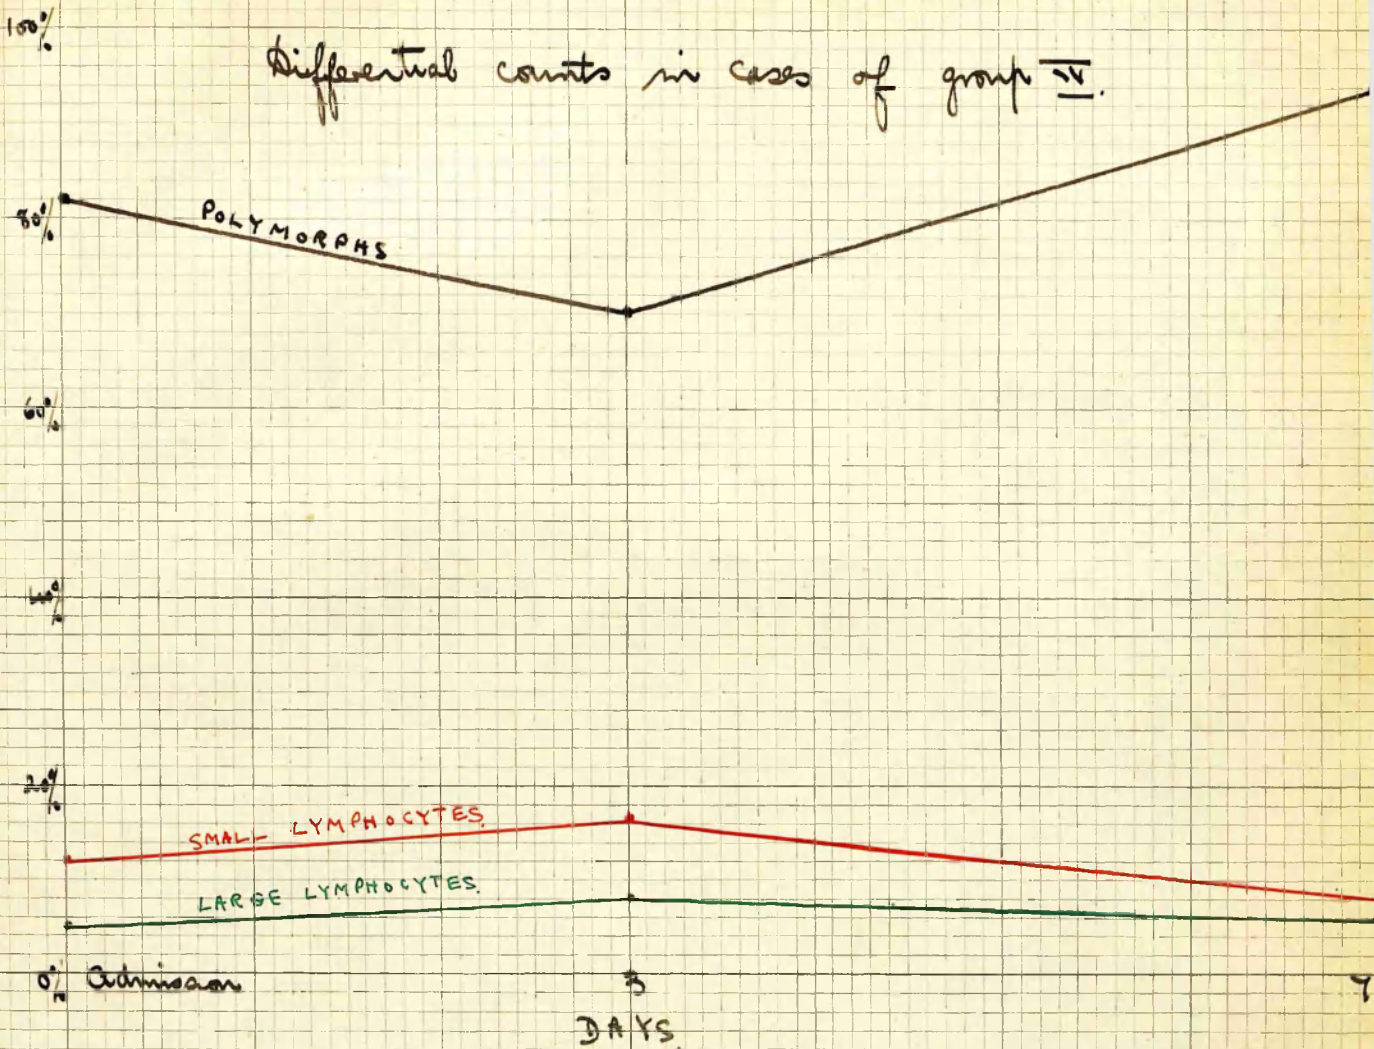 100%
Differential counts in cases of group IV.
80%
POLYMORPHS
60%
40%
20%
SMALL LYMPHOCYTES.
LARGE LYMPHOCYTES.
0% Admission 3 7
DAYS.